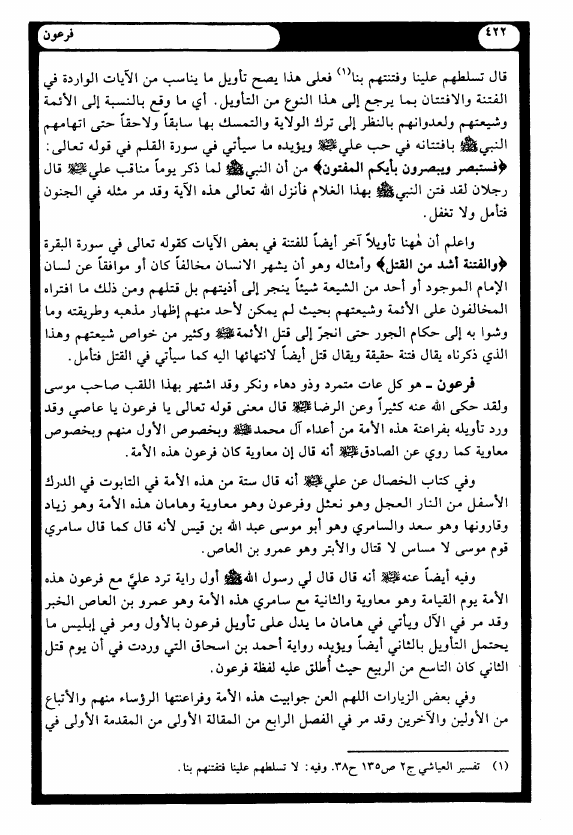 ٤٢٢
فرعون
قال تسلطهم علينا وفتنتهم بنا(١) فعلى هذا يصح تأويل ما يناسب من الآيات الواردة في
الفتنة والافتتان بما يرجع إلى هذا النوع من التأويل. أي ما وقع بالنسبة إلى الأئمة
وشيعتهم ولعدوانهم بالنظر إلى ترك الولاية والتمسك بها سابقاً ولاحقاً حتى اتهامهم
النبي ﷺ بافتتانه في حب علي عليه السلام ويؤيده ما سيأتي في سورة القلم في قوله تعالى:
﴿فستبصر ويبصرون بأيكم المفتون﴾ من أن النبي ﷺ لما ذكر يوماً مناقب علي عليه السلام قال
رجلان لقد فتن النبي ﷺ بهذا الغلام فأنزل الله تعالى هذه الآية وقد مر مثله في الجنون
فتأمل ولا تغفل.
واعلم أن هٰهنا تأويلاً آخر أيضاً للفتنة في بعض الآيات كقوله تعالى في سورة البقرة
﴿والفتنة أشد من القتل﴾ وأمثاله وهو أن يشهر الانسان مخالفاً كان أو موافقاً عن لسان
الإمام الموجود أو أحد من الشيعة شيئاً ينجر إلى أذيتهم بل قتلهم ومن ذلك ما افتراه
المخالفون على الأئمة وشيعتهم بحيث لم يمكن لأحد منهم إظهار مذهبه وطريقته وما
وشوا به إلى حكام الجور حتى انجرّ إلى قتل الأئمة عليه السلام وكثير من خواص شيعتهم وهذا
الذي ذكرناه يقال فتنة حقيقة ويقال قتل أيضاً لانتهائها اليه كما سيأتي في القتل فتأمل.
فرعون ـ هو كل عات متمرد وذو دهاء ونكر وقد اشتهر بهذا اللقب صاحب موسى
ولقد حكى الله عنه كثيراً وعن الرضا عليه السلام قال معنى قوله تعالى يا فرعون يا عاصي وقد
ورد تأويله بفراعنة هذه الأمة من أعداء آل محمد ﷺ وبخصوص الأول منهم وبخصوص
معاوية كما روي عن الصادق عليه السلام أنه قال إن معاوية كان فرعون هذه الأمة.
وفي كتاب الخصال عن علي عليه السلام أنه قال ستة من هذه الأمة في التابوت في الدرك
الأسفل من النار العجل وهو نعثل وفرعون وهو معاوية وهامان هذه الأمة وهو زياد
وقارونها وهو سعد والسامري وهو أبو موسى عبد الله بن قيس لأنه قال كما قال سامري
قوم موسى لا مساس لا قتال والأبتر وهو عمرو بن العاص.
وفيه أيضاً عنه عليه السلام أنه قال قال لي رسول الله ﷺ أول راية ترد عليّ مع فرعون هذه
الأمة يوم القيامة وهو معاوية والثانية مع سامري هذه الأمة وهو عمرو بن العاص الخبر
وقد مر في الآل ويأتي في هامان ما يدل على تأويل فرعون بالأول ومر في إبليس ما
يحتمل التأويل بالثاني أيضاً ويؤيده رواية أحمد بن اسحاق التي وردت في أن يوم قتل
الثاني كان التاسع من الربيع حيث أُطلق عليه لفظة فرعون.
وفي بعض الزيارات اللهم العن جوابيت هذه الأمة وفراعنتها الرؤساء منهم والأتباع
من الأولين والآخرين وقد مر في الفصل الرابع من المقالة الأولى من المقدمة الأولى في
(١) تفسير العياشي ج٢ ص١٣٥ ح٣٨. وفيه: لا تسلطهم علينا فتفتنهم بنا.